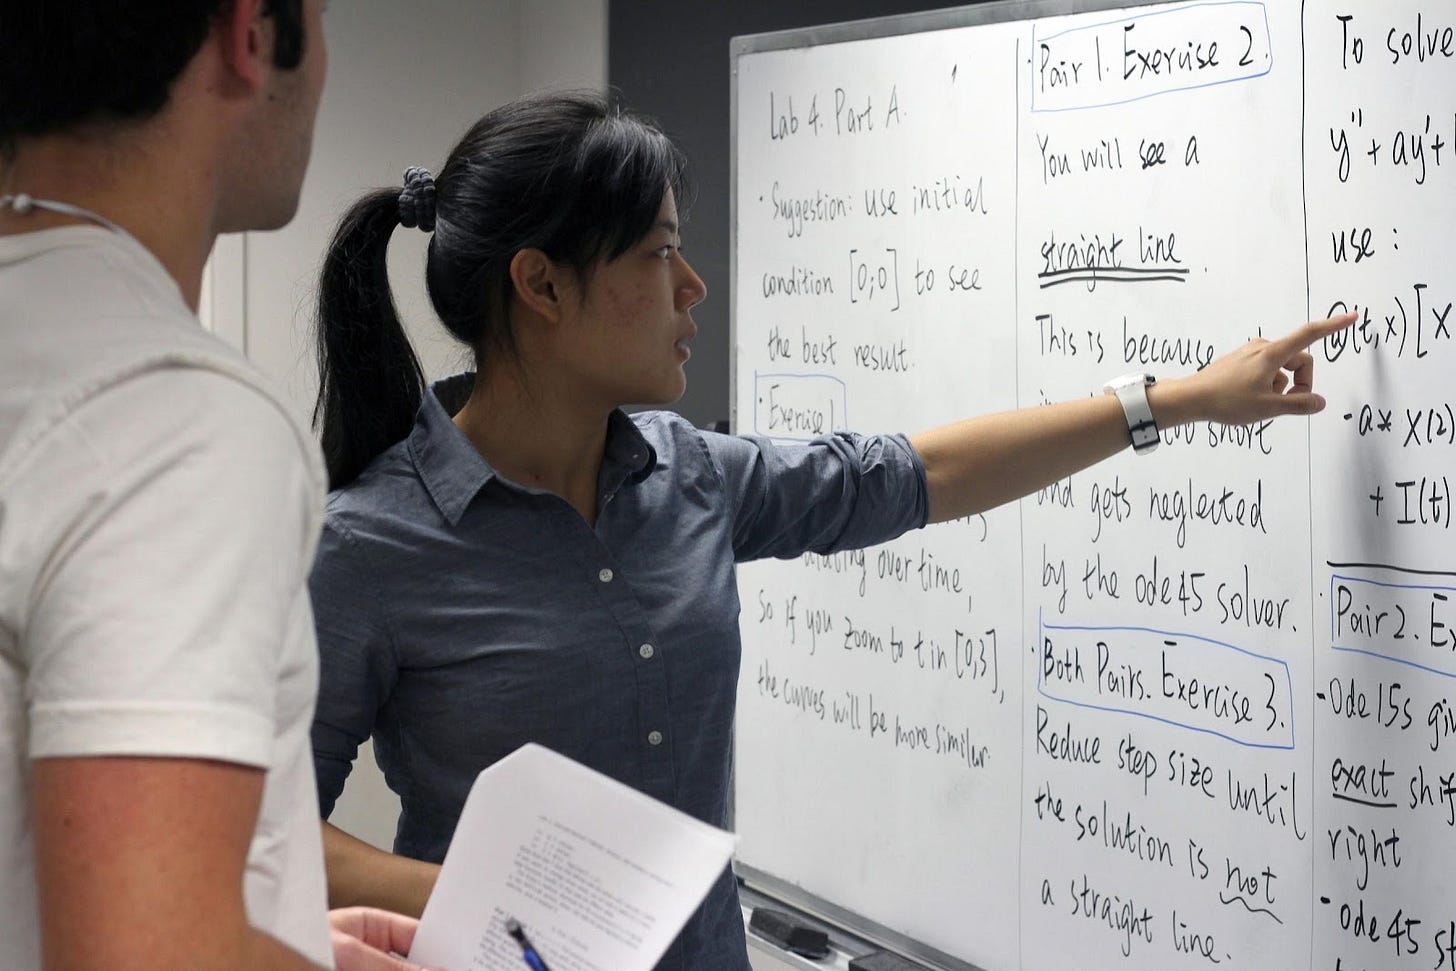 Lab 4. Part A.
· Suggestion: use initial
condition [0;0] to see
the best result.
· Exercise 1
over time,
So if you zoom to t in [0,3],
the curves will be more similar.
· Pair 1. Exercise 2.
You will see a
straight line.
This is because
too short
and gets neglected
by the ode45 solver.
· Both Pairs. Exercise 3.
Reduce step size until
the solution is not
a straight line.
To solve
y'' + ay' +
use :
@(t,x) [X
- a* X(2)
+ I(t)
· Pair 2.
- Ode 15s
exact
right
- Ode 45